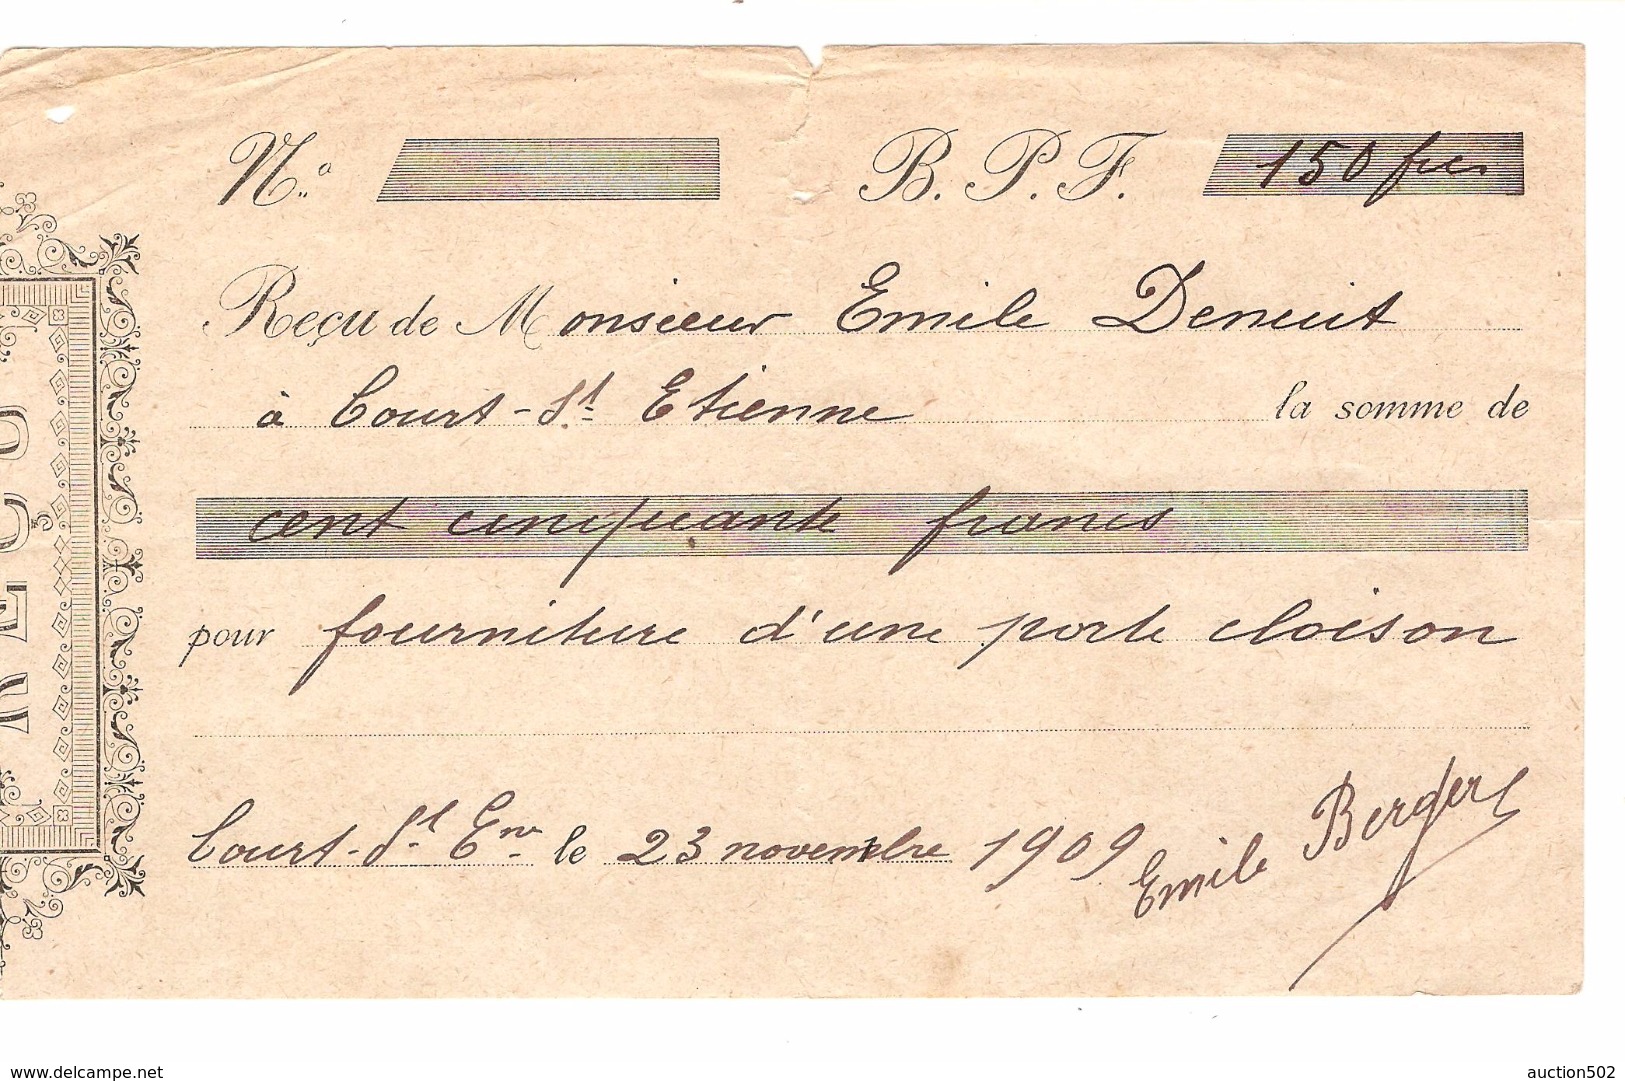 REÇU
N.º B. P. F. 150 frcs
Reçu de Monsieur Emile Denuit
à Court-St. Etienne la somme de
cent cinquante francs
pour fourniture d'une porte cloison
Court-St. Ene le 23 novembre 1909 Emile Berger
www.delcampe.net auction502